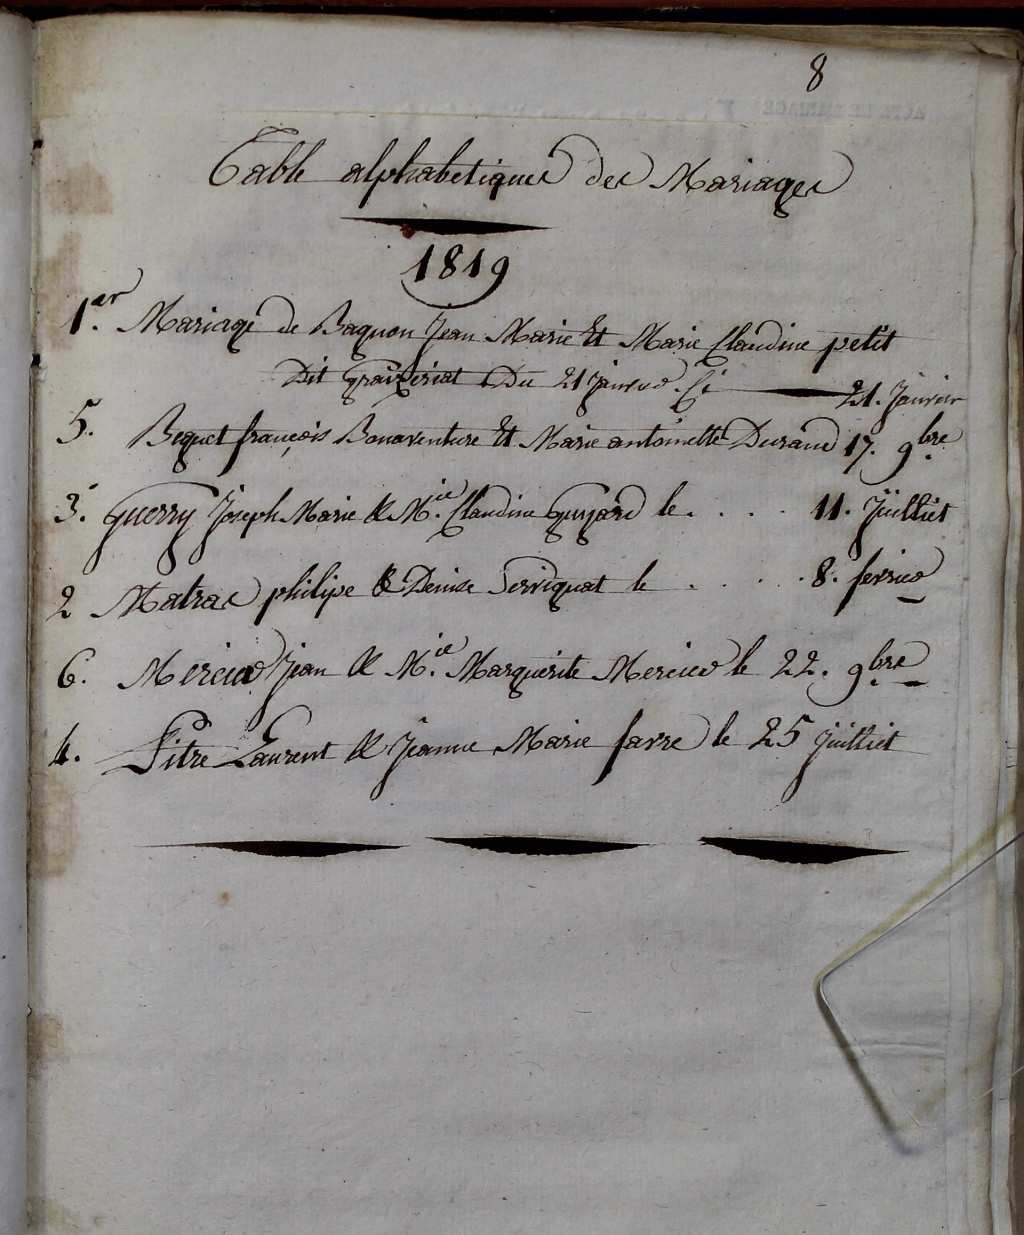 8
Table alphabetiques des Mariages
1819
1.er Mariage de Baquon Jean Marie Et Marie Claudine petit
Dit Du 21 Janvier. Ci 21. Janvier
5. Bequet françois Bonaventure Et Marie antoinette Durand 17. 9bre
3. Guerry Joseph Marie & M.ie Claudine Guyard le . . . . 11. Juilliet
2 Matras philipe & Denise le . . . . . 8. fevrier
6. Mercier Jean & M.ie Marguerite Mercier le 22. 9bre
4. Pitre Laurent & Jeanne Marie favre le 25 Juilliet